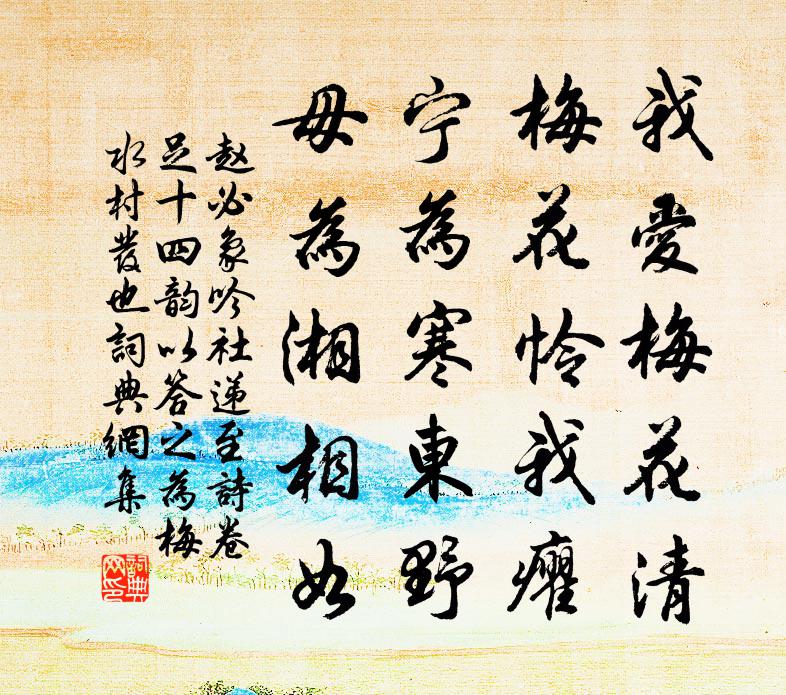 我愛梅花清
梅花怜我癯
宁為寒東野
毋為湘相如
赵必象吟社递至詩卷
足十四韵以答之為梅
水村發也詞典網集
詞典網印